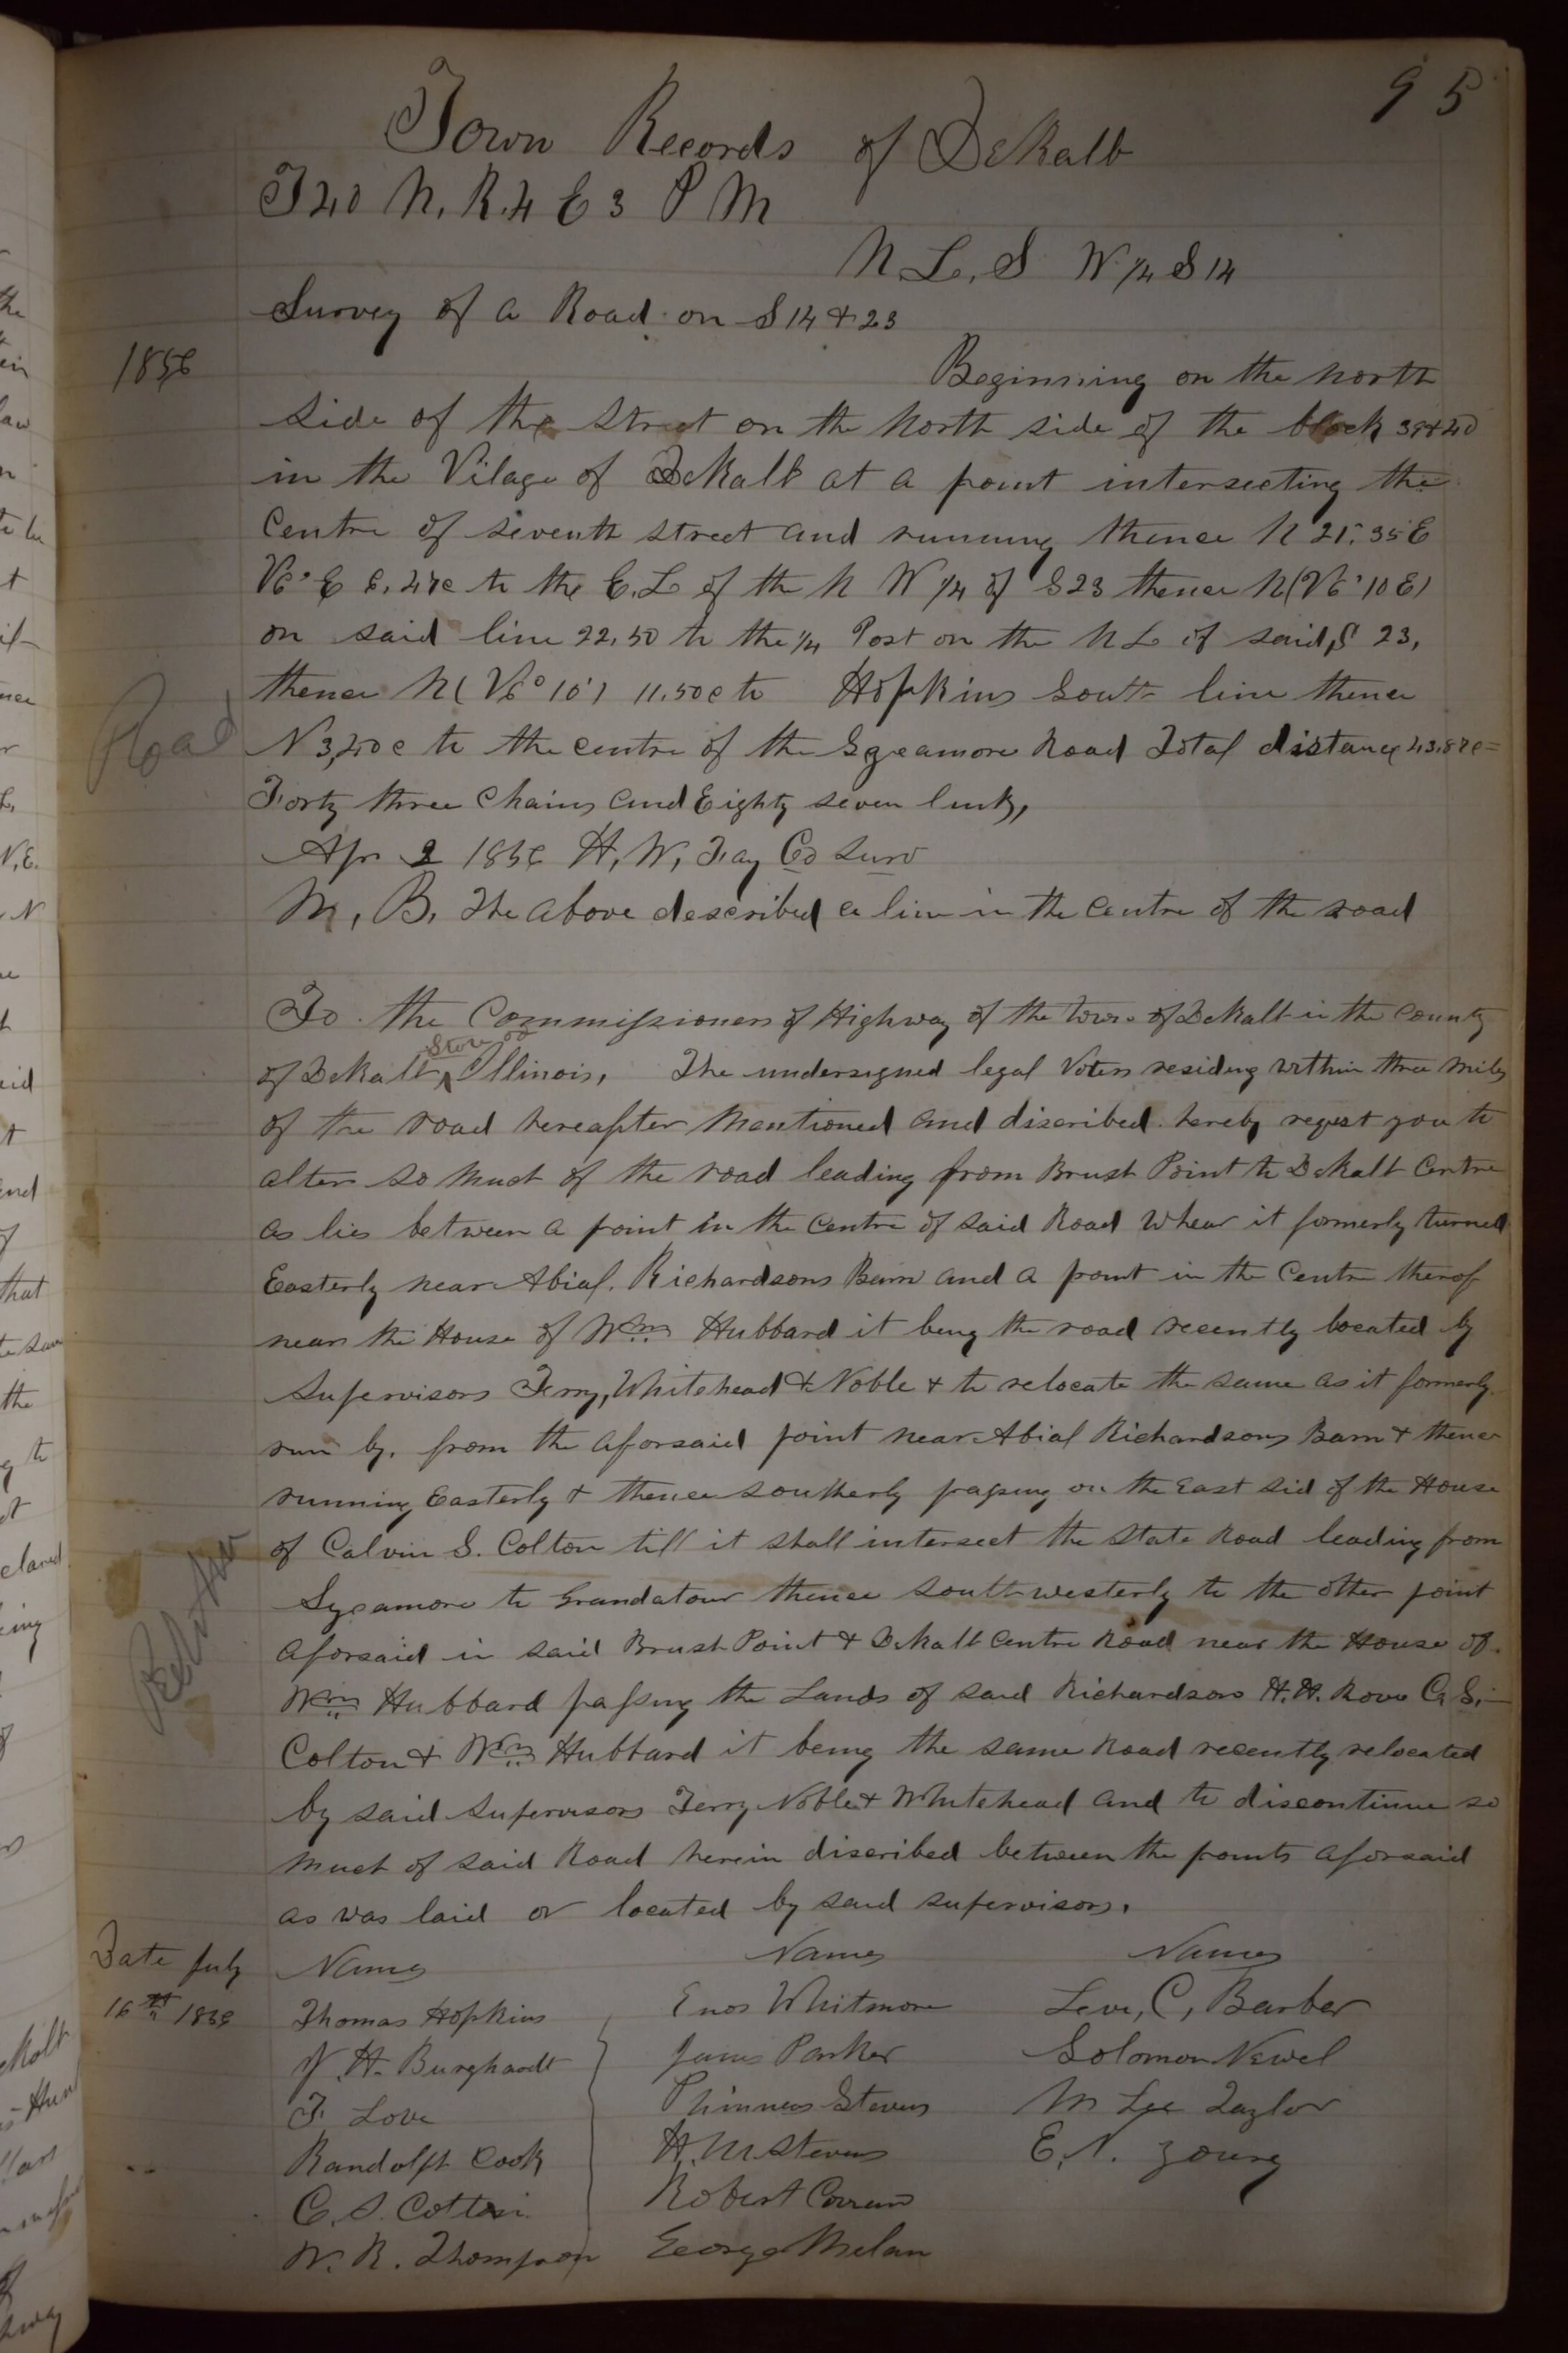 95
Town Records of DeKalb
T40 N. R. 4 E 3 P M
N. L. S W 1/4 S 14
Survey of a Road on S 14 & 23
1856
Beginning on the north
side of the street on the north side of the block 39 & 40
in the Vilage of DeKalb at a point intersecting the
Centre of seventh street and running thence N 21° 35 E
to the E. L of the N W 1/4 of S 23 thence N (V 6° 10 E)
on said line 22,50 to the 1/4 Post on the N L of said S 23,
thence N ( V 6° 10' ) 11.50 c to Hopkins South line thence
Road
N 3,40 c to the centre of the Sycamore Road Total distance 43.87 c =
Forty three Chains and Eighty seven links,
Apr 2 1856 H, W, Fay Co Surv
N, B, The above described a line in the Centre of the road
To the Commissioners of Highway of the Town of DeKalb in the County
of DeKalb Illinois, The undersigned legal Voters residing within three miles
of the road hereafter Mentioned and discribed hereby reqest you to
alter so much of the road leading from Brush Point to DeKalb Centre
as lies between a point in the Centre of said Road Whear it formerly turned
Easterly near Abial. Richardsons Barn and a point in the Centre therof
near the House of Wm Hubbard it being the road recently located by
Supervisors Terry, Whitehead & Noble & to relocate the same as it formerly
run by. from the aforsaid point near Abial Richardsons Barn & thence
running Easterly & thence southerly passing on the East sid of the House
of Calvin S. Colton till it shall intersect the State Road leading from
Sycamore to Grandatour thence southwesterly to the other point
aforsaid in said Brush Point & DeKalb Centre Road near the House of
Wm Hubbard passing the Lands of said Richardson H. H. Rove C. S.
Colton & Wm Hubbard it being the same Road recently relocated
by said Supervisors Terry Noble & Whitehead and to discontinue so
much of said Road herein discribed between the points aforsaid
as was laid or located by said supervisors.
Date July
16th 1856
Names Names Names
Thomas Hopkins Enos Whitmore Levi, C, Barber
H. Burghardt James Parker Solomon Newel
T. Love Phinneas Stevens M Lee Taylor
Randolph Cook H. M Stevens E. N. Young
C. S. Colton Robert
W. R. Thompson George